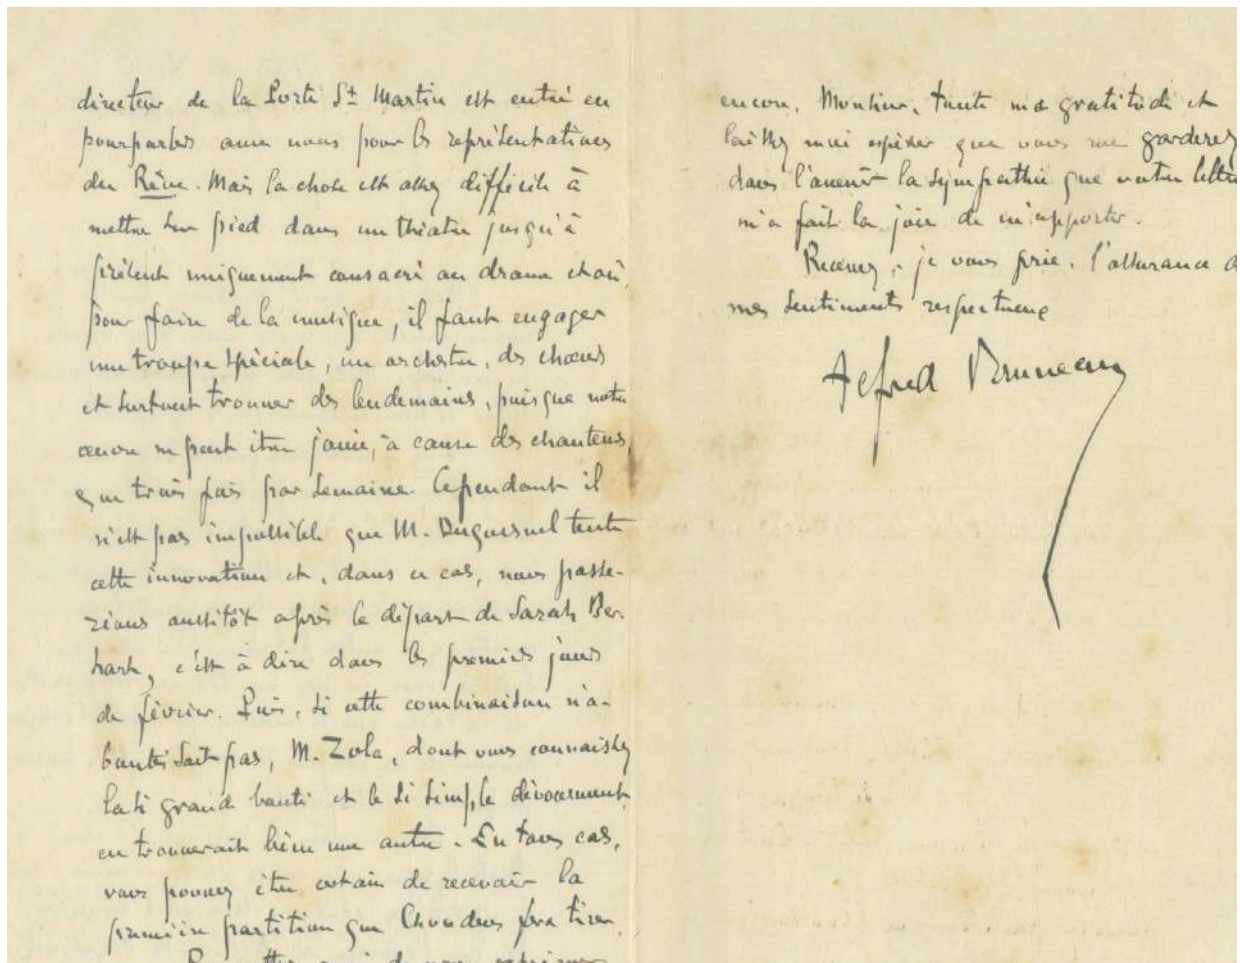 directeur de la Porte St Martin est entré en
pourparlers avec nous pour les représentations
du Rêve. Mais la chose est assez difficile à
mettre sur pied dans un théâtre jusqu'à
présent uniquement consacré au drame et où,
pour faire de la musique, il faut engager
une troupe spéciale, un orchestre, des chœurs
et surtout trouver des lendemains, puisque notre
œuvre ne peut être jouée, à cause des chanteurs,
que trois fois par semaine. Cependant il
n'est pas impossible que M. Duquesnel tente
cette innovation et, dans ce cas, nous passe-
rions aussitôt après le départ de Sarah Ber-
hart, c'est à dire dans les premiers jours
de février. Puis, si cette combinaison n'a-
boutissait pas, M. Zola, dont vous connaissez
la si grande bonté et le si simple dévouement,
en trouverait bien une autre. En tous cas,
vous pouvez être certain de recevoir la
première partition que Choudens fera tirer.
Permettez moi de vous exprimer
encore, Monsieur, toute ma gratitude et
laissez moi espérer que vous me garderez
dans l'avenir la sympathie que votre lettre
m'a fait la joie de m'apporter.
Recevez, je vous prie, l'assurance d
mes sentiments respectueux
Alfred Bruneau